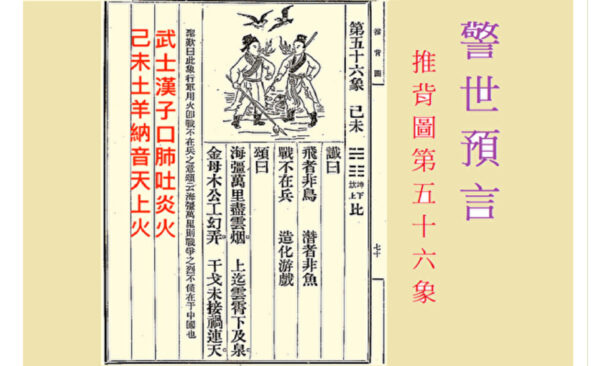 警世預言
推背圖第五十六象
推背圖
七十
第五十六象 己未
坤下
坎上
比
讖曰
飛者非鳥 潛者非魚
戰不在兵 造化游戲
頌曰
海疆萬里盡雲烟 上迄雲霄下及泉。
金母木公工幻弄。 干戈未接禍連天。
聖歎曰此象行軍用火即戰不在兵之意頌云海疆萬里則戰爭之烈不僅在于中國也
武士漢子口肺吐炎火
己未土羊納音天上火